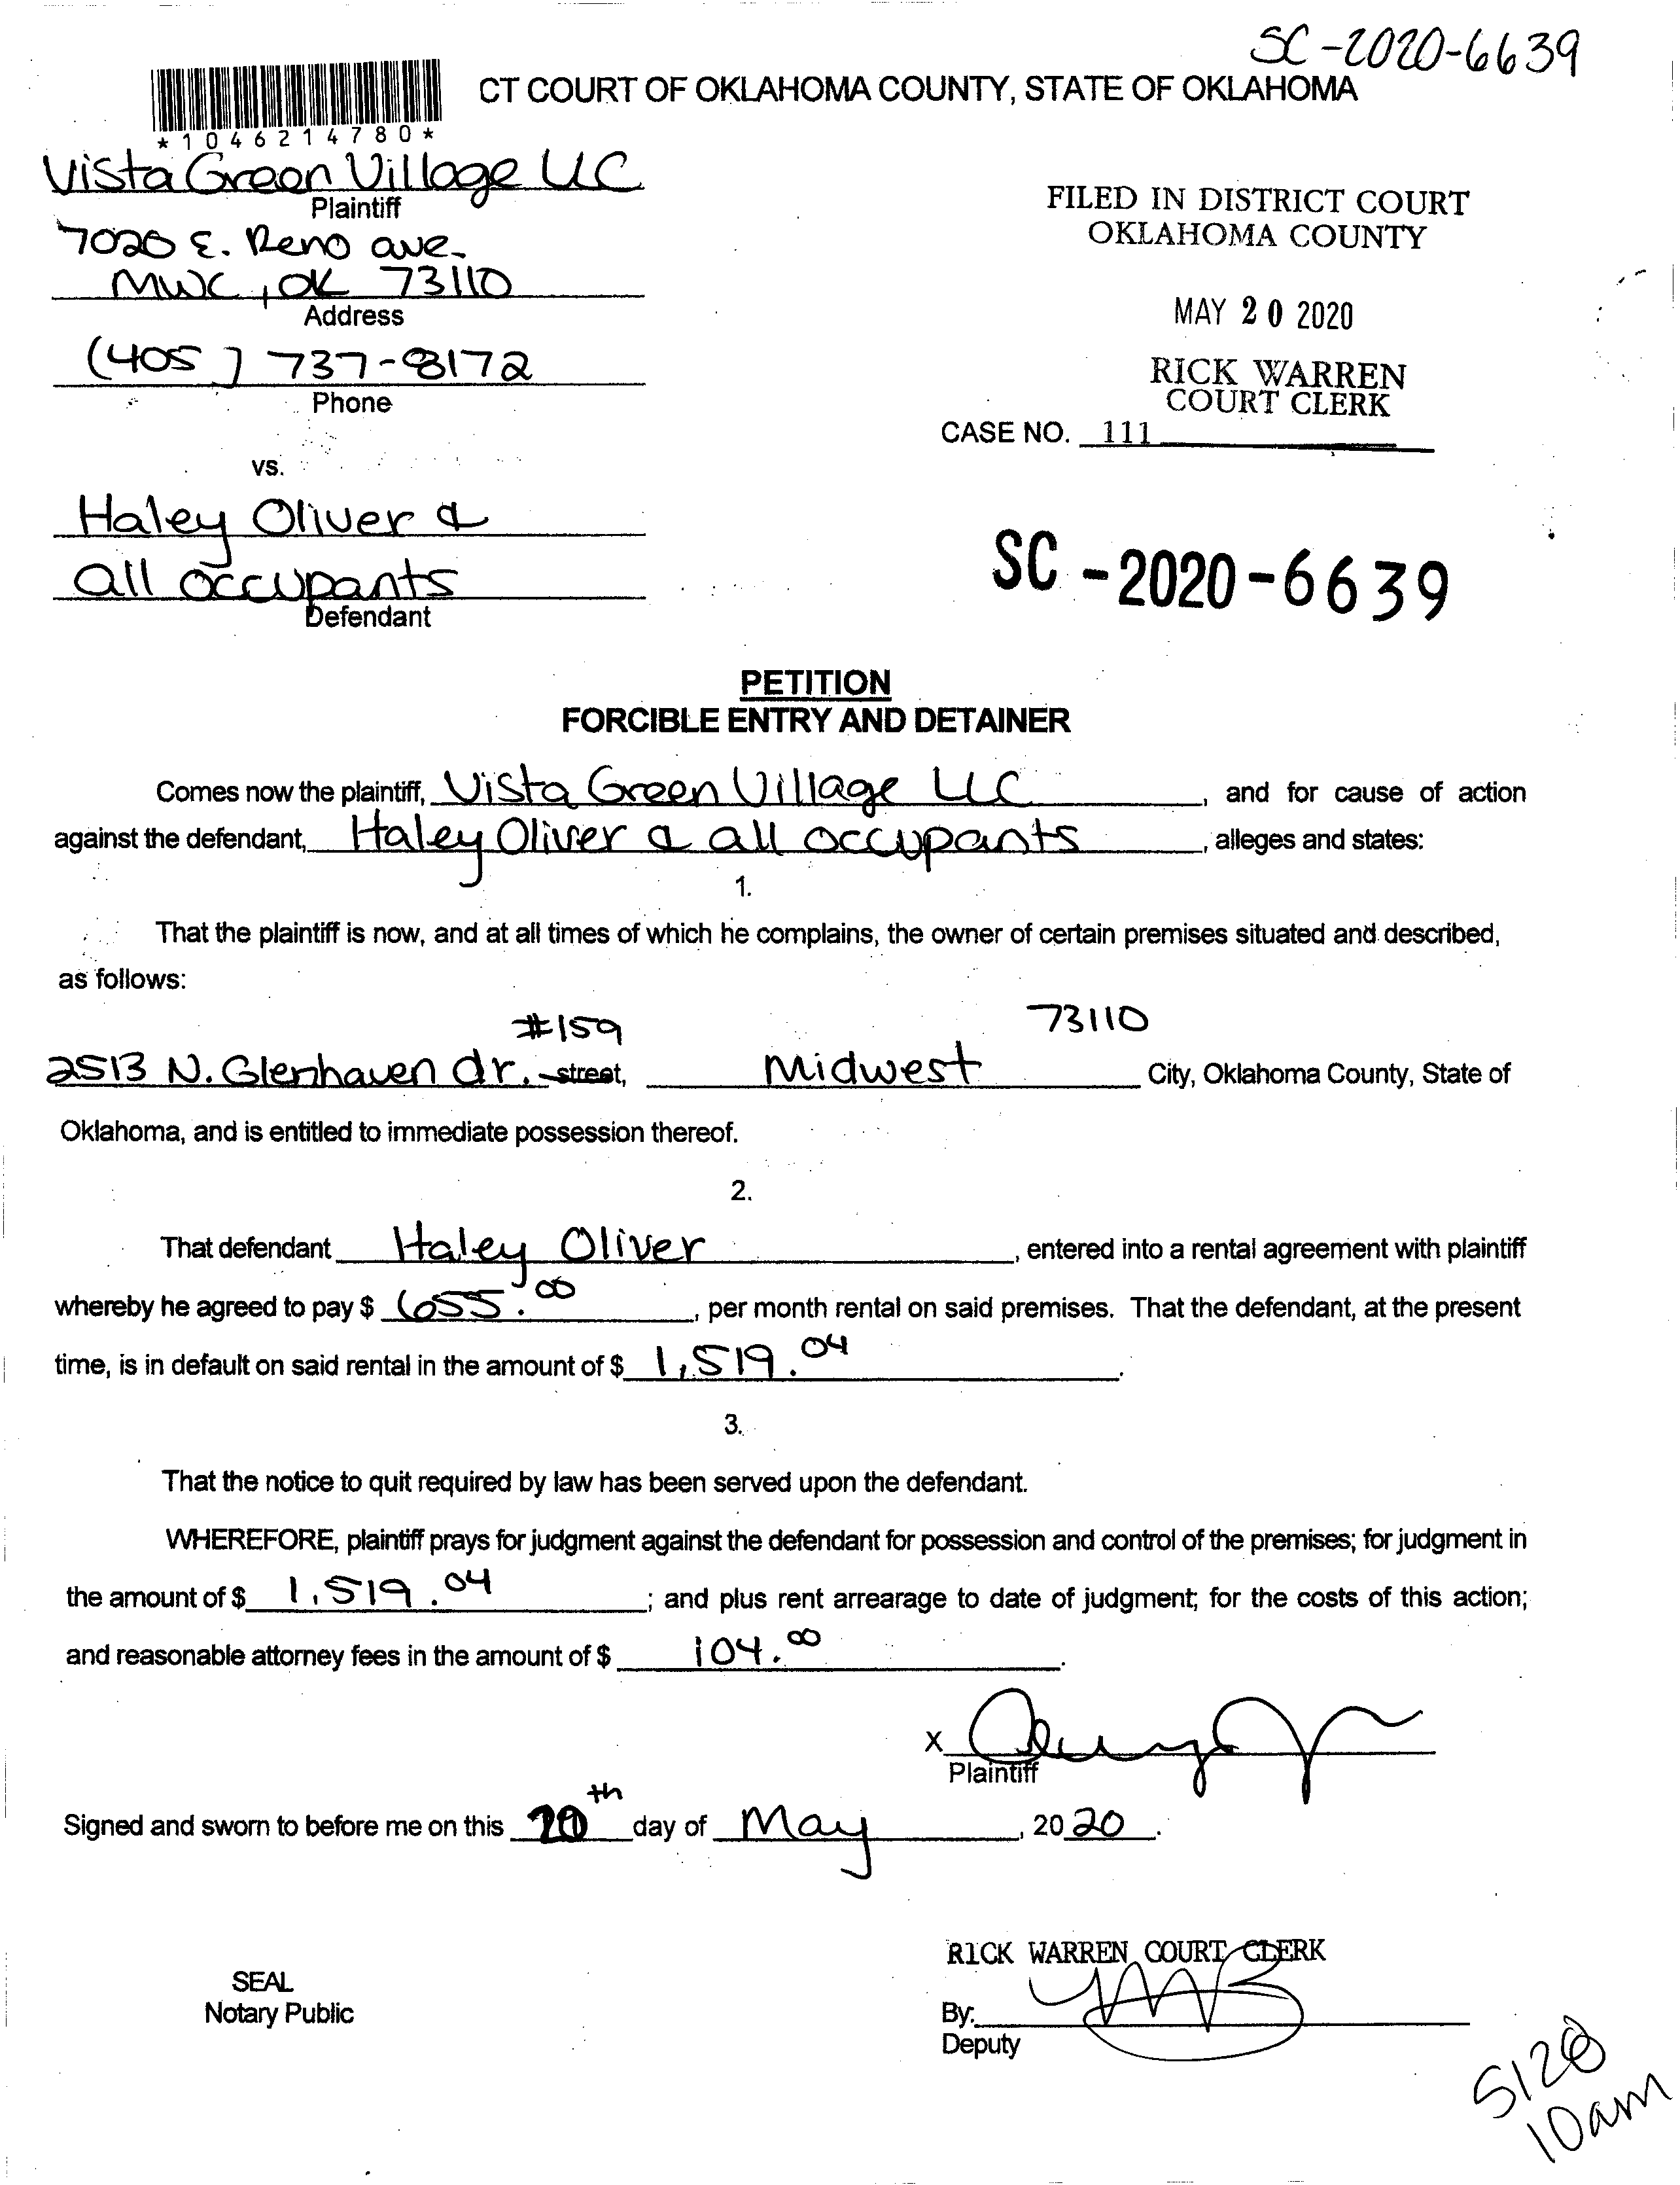 SC-2020-6639
CT COURT OF OKLAHOMA COUNTY, STATE OF OKLAHOMA
*1046214780*
Vista Green Village LLC
Plaintiff
7020 E. Reno ave.
MWC, OK 73110
Address
(405) 737-8172
Phone
vs.
Haley Oliver &
all occupants
Defendant
FILED IN DISTRICT COURT
OKLAHOMA COUNTY
MAY 20 2020
RICK WARREN
COURT CLERK
CASE NO. 111
SC-2020-6639
PETITION
FORCIBLE ENTRY AND DETAINER
Comes now the plaintiff, Vista Green Village LLC, and for cause of action
against the defendant, Haley Oliver & all occupants, alleges and states:
1.
That the plaintiff is now, and at all times of which he complains, the owner of certain premises situated and described,
as follows:
#159 73110
2513 N. Glenhaven dr. street, Midwest City, Oklahoma County, State of
Oklahoma, and is entitled to immediate possession thereof.
2.
That defendant Haley Oliver, entered into a rental agreement with plaintiff
whereby he agreed to pay $ 655.00, per month rental on said premises. That the defendant, at the present
time, is in default on said rental in the amount of $ 1,519.04.
3.
That the notice to quit required by law has been served upon the defendant.
WHEREFORE, plaintiff prays for judgment against the defendant for possession and control of the premises; for judgment in
the amount of $ 1,519.04; and plus rent arrearage to date of judgment; for the costs of this action;
and reasonable attorney fees in the amount of $ 104.00.
X
Plaintiff
Signed and sworn to before me on this 20th day of May, 2020.
RICK WARREN COURT CLERK
SEAL
Notary Public
By:
Deputy
10am